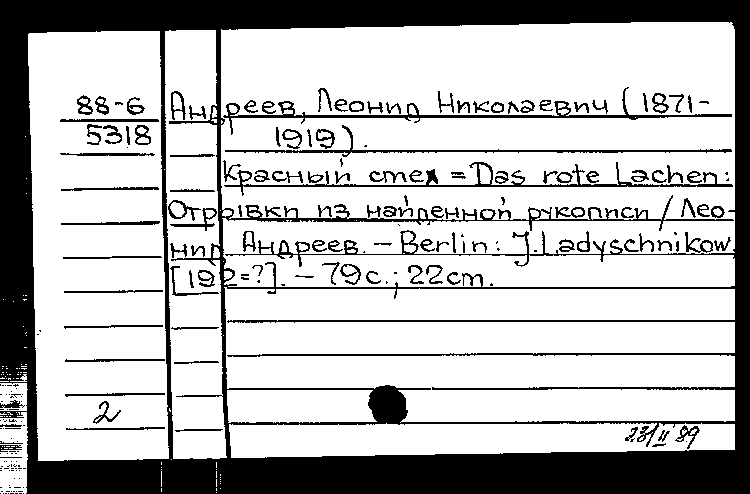 88-6 Андреев, Леонид Николаевич (1871-
5318 1919).
Красный смех = Das rote Lachen:
Отрывки из найденной рукописи / Лео-
нид Андреев. – Berlin: J. Ladyschnikow,
[192=?]. – 79 с.; 22 cm.
2
23/II 89